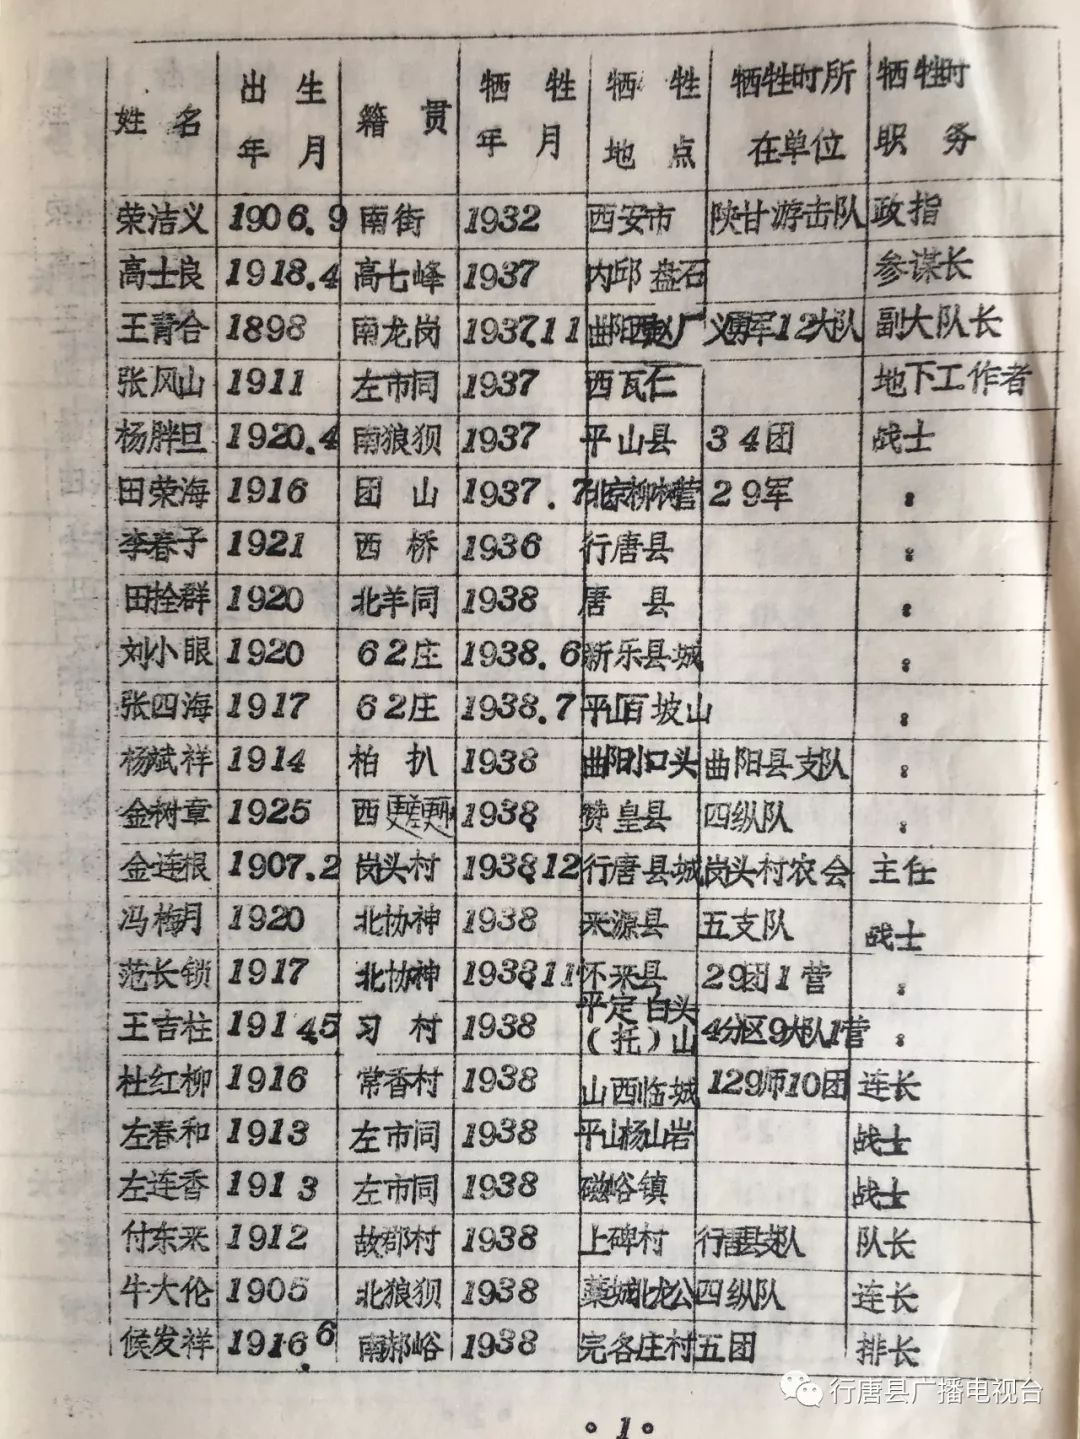 姓名 出生年月 籍贯 牺牲年月 牺牲地点 牺牲时所在单位 牺牲时职务
荣洁义 1906.9 南街 1932 西安市 陕甘游击队 政指
高士良 1918.4 高七峰 1937 内邱盘石 参谋长
王青合 1898 南龙岗 1937.11 曲阳西赵厂 义勇军12大队 副大队长
张凤山 1911 左市同 1937 西瓦仁 地下工作者
杨胖旦 1920.4 南狼狈 1937 平山县 34团 战士
田荣海 1916 团山 1937.7 北京柳树营 29军 〃
李春子 1921 西桥 1936 行唐县 〃
田拴群 1920 北羊同 1938 唐县 〃
刘小眼 1920 62庄 1938.6 新乐县城 〃
张四海 1917 62庄 1938.7 平山百坡山 〃
杨斌祥 1914 柏扒 1938 曲阳小口头 曲阳县支队 〃
金树章 1925 西 1938 赞皇县 四纵队 〃
金连根 1907.2 岗头村 1938.12 行唐县城 岗头村农会 主任
冯梅月 1920 北协神 1938 来源县 五支队 战士
范长锁 1917 北协神 1938.11 怀来县 29团1营 〃
王吉柱 1914.5 习村 1938 平定白头(托)山 4分区9大队1营 〃
杜红柳 1916 常香村 1938 山西临城 129师10团 连长
左春和 1913 左市同 1938 平山杨山岩 战士
左连香 1913 左市同 1938 磁峪镇 战士
付东来 1912 故郡村 1938 上碑村 行唐县支队 队长
牛大伦 1905 北狼狈 1938 藁城北龙公 四纵队 连长
候发祥 1916.6 南郝峪 1938 完各庄村 五团 排长
行唐县广播电视台
·1·